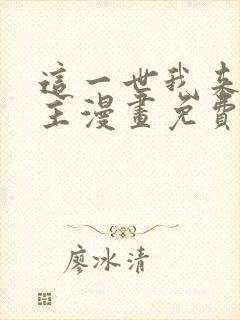 這一世我來
主漫畫免費
廖冰清